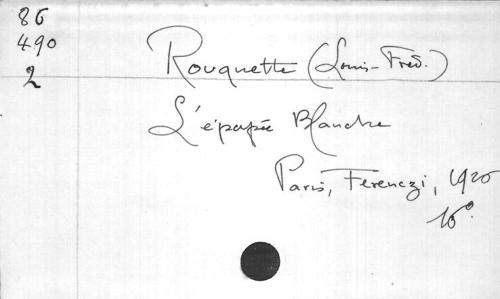 86
490
2
Rouquette (Louis-Fréd.)
L'épopée Blanche
Paris, Ferenczi, 1926
16°